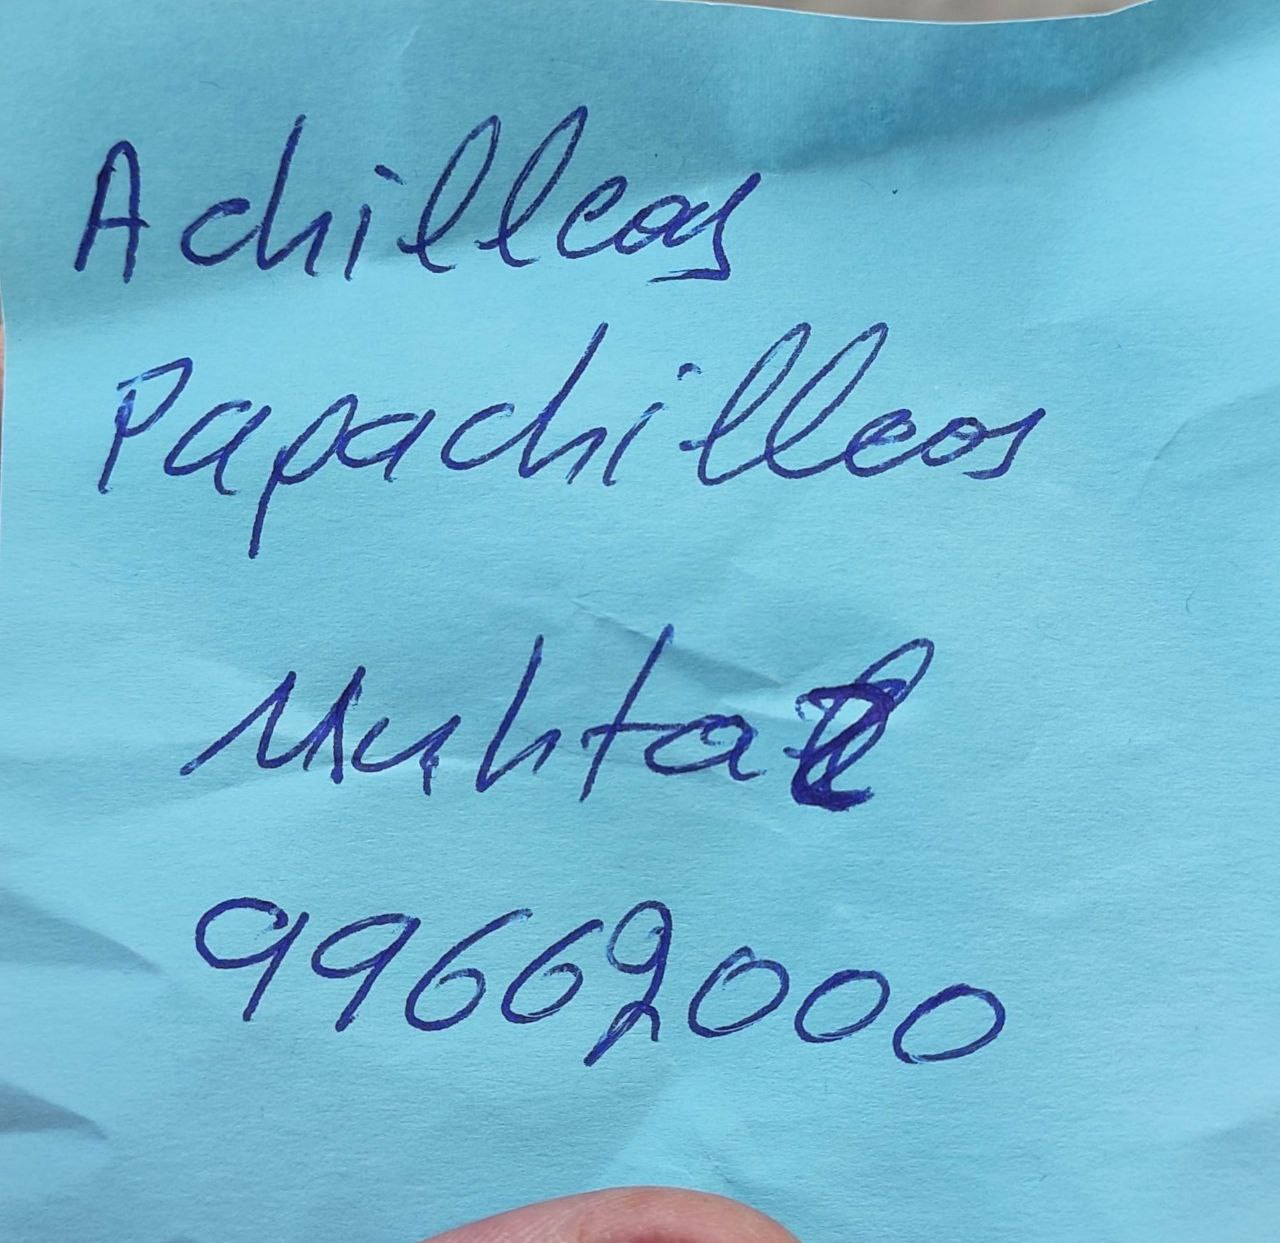 Achilleos
Papachilleos
99662000